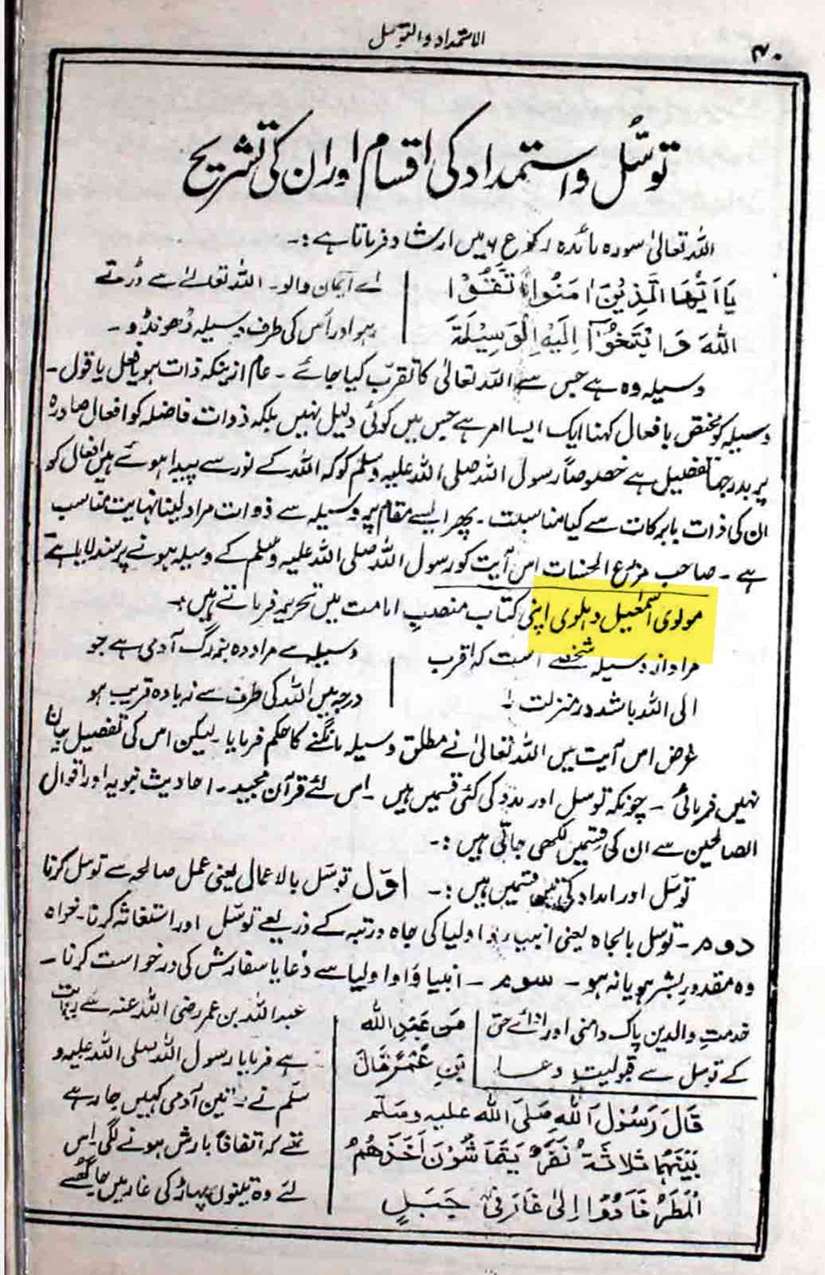 ۴۰
الاستمداد والتوسل
توسُّل و استمداد کی اقسام اور ان کی تشریح
اللہ تعالیٰ سورہ مائدہ رکوع ۶ میں ارشاد فرماتا ہے:۔
يَا اَيُّهَا الَّذِيْنَ اٰمَنُوا اتَّقُوْا
اللهَ وَابْتَغُوْٓا اِلَيْهِ الْوَسِيْلَةَ
اے ایمان والو۔ اللہ تعالےٰ سے ڈرتے
رہو اور اُس کی طرف وسیلہ ڈھونڈو۔
وسیلہ وہ ہے جس سے اللہ تعالیٰ کا تقرب کیا جائے۔ عام ازینکہ ذات ہو یا فعل یا قول۔
وسیلہ کو مختص بافعال کہنا ایک ایسا امر ہے جس میں کوئی دلیل نہیں بلکہ ذوات فاضلہ کو افعال صادرہ
پر بدرجہا تفضیل ہے خصوصاً رسول اللہ صلی اللہ علیہ وسلم کو کہ اللہ کے نور سے پیدا ہوئے ہیں افعال کو
ان کی ذات بابرکات سے کیا مناسبت۔ پھر ایسے مقام پر وسیلہ سے ذوات مراد لینا نہایت مناسب
ہے۔ صاحب مزرع الحسنات اس آیت کو رسول اللہ صلی اللہ علیہ وسلم کے وسیلہ ہونے پر سند لایا ہے
مولوی اسمٰعیل دہلوی اپنی کتاب منصب امامت میں تحریر فرماتے ہیں:۔
مراد از وسیلہ شخصے است کہ اقرب
الی اللہ باشد در منزلت۔
وسیلہ سے مراد وہ بزرگ آدمی ہے جو
درجہ میں اللہ کی طرف سے زیادہ قریب ہو
غرض اس آیت میں اللہ تعالیٰ نے مطلق وسیلہ مانگنے کا حکم فرمایا۔ لیکن اس کی تفصیل بیان
نہیں فرمائی۔ چونکہ توسل اور مدد کی کئی قسمیں ہیں۔ اس لئے قرآن مجید۔ احادیث نبویہ اور اقوال
الصالحین سے ان کی قسمیں لکھی جاتی ہیں:۔
توسل اور امداد کی تین قسمیں ہیں:۔ اوّل توسل بالاعمال یعنی عمل صالحہ سے توسل کرنا
دوم۔ توسل بالجاہ یعنی انبیاء و اولیا کی جاہ و رتبہ کے ذریعے توسل اور استغاثہ کرنا۔ خواہ
وہ مقدور بشر ہو یا نہ ہو۔ سوم۔ انبیاؤ اولیا سے دعا یا سفارش کی درخواست کرنا۔
خدمت والدین پاک دامنی اور ادائے حق
کے توسل سے قبولیت دعا
عَنْ عَبْدِ اللهِ
بْنِ عُمَرَ قَالَ
قَالَ رَسُوْلُ اللهِ صَلَّى اللهُ عليه وسلم
بَيْنَمَا ثَلَاثَةُ نَفَرٍ يَتَمَاشَوْنَ اَخَذَهُمُ
الْمَطَرُ فَاَوَوْا اِلٰى غَارٍ فِيْ جَبَلٍ
عبداللہ بن عمر رضی اللہ عنہ سے روایت
ہے فرمایا رسول اللہ صلی اللہ علیہ و
سلم نے۔ تین آدمی کہیں جا رہے
تھے کہ اتفاقاً بارش ہونے لگی اس
لئے وہ تینوں پہاڑ کی غار میں جا گھسے